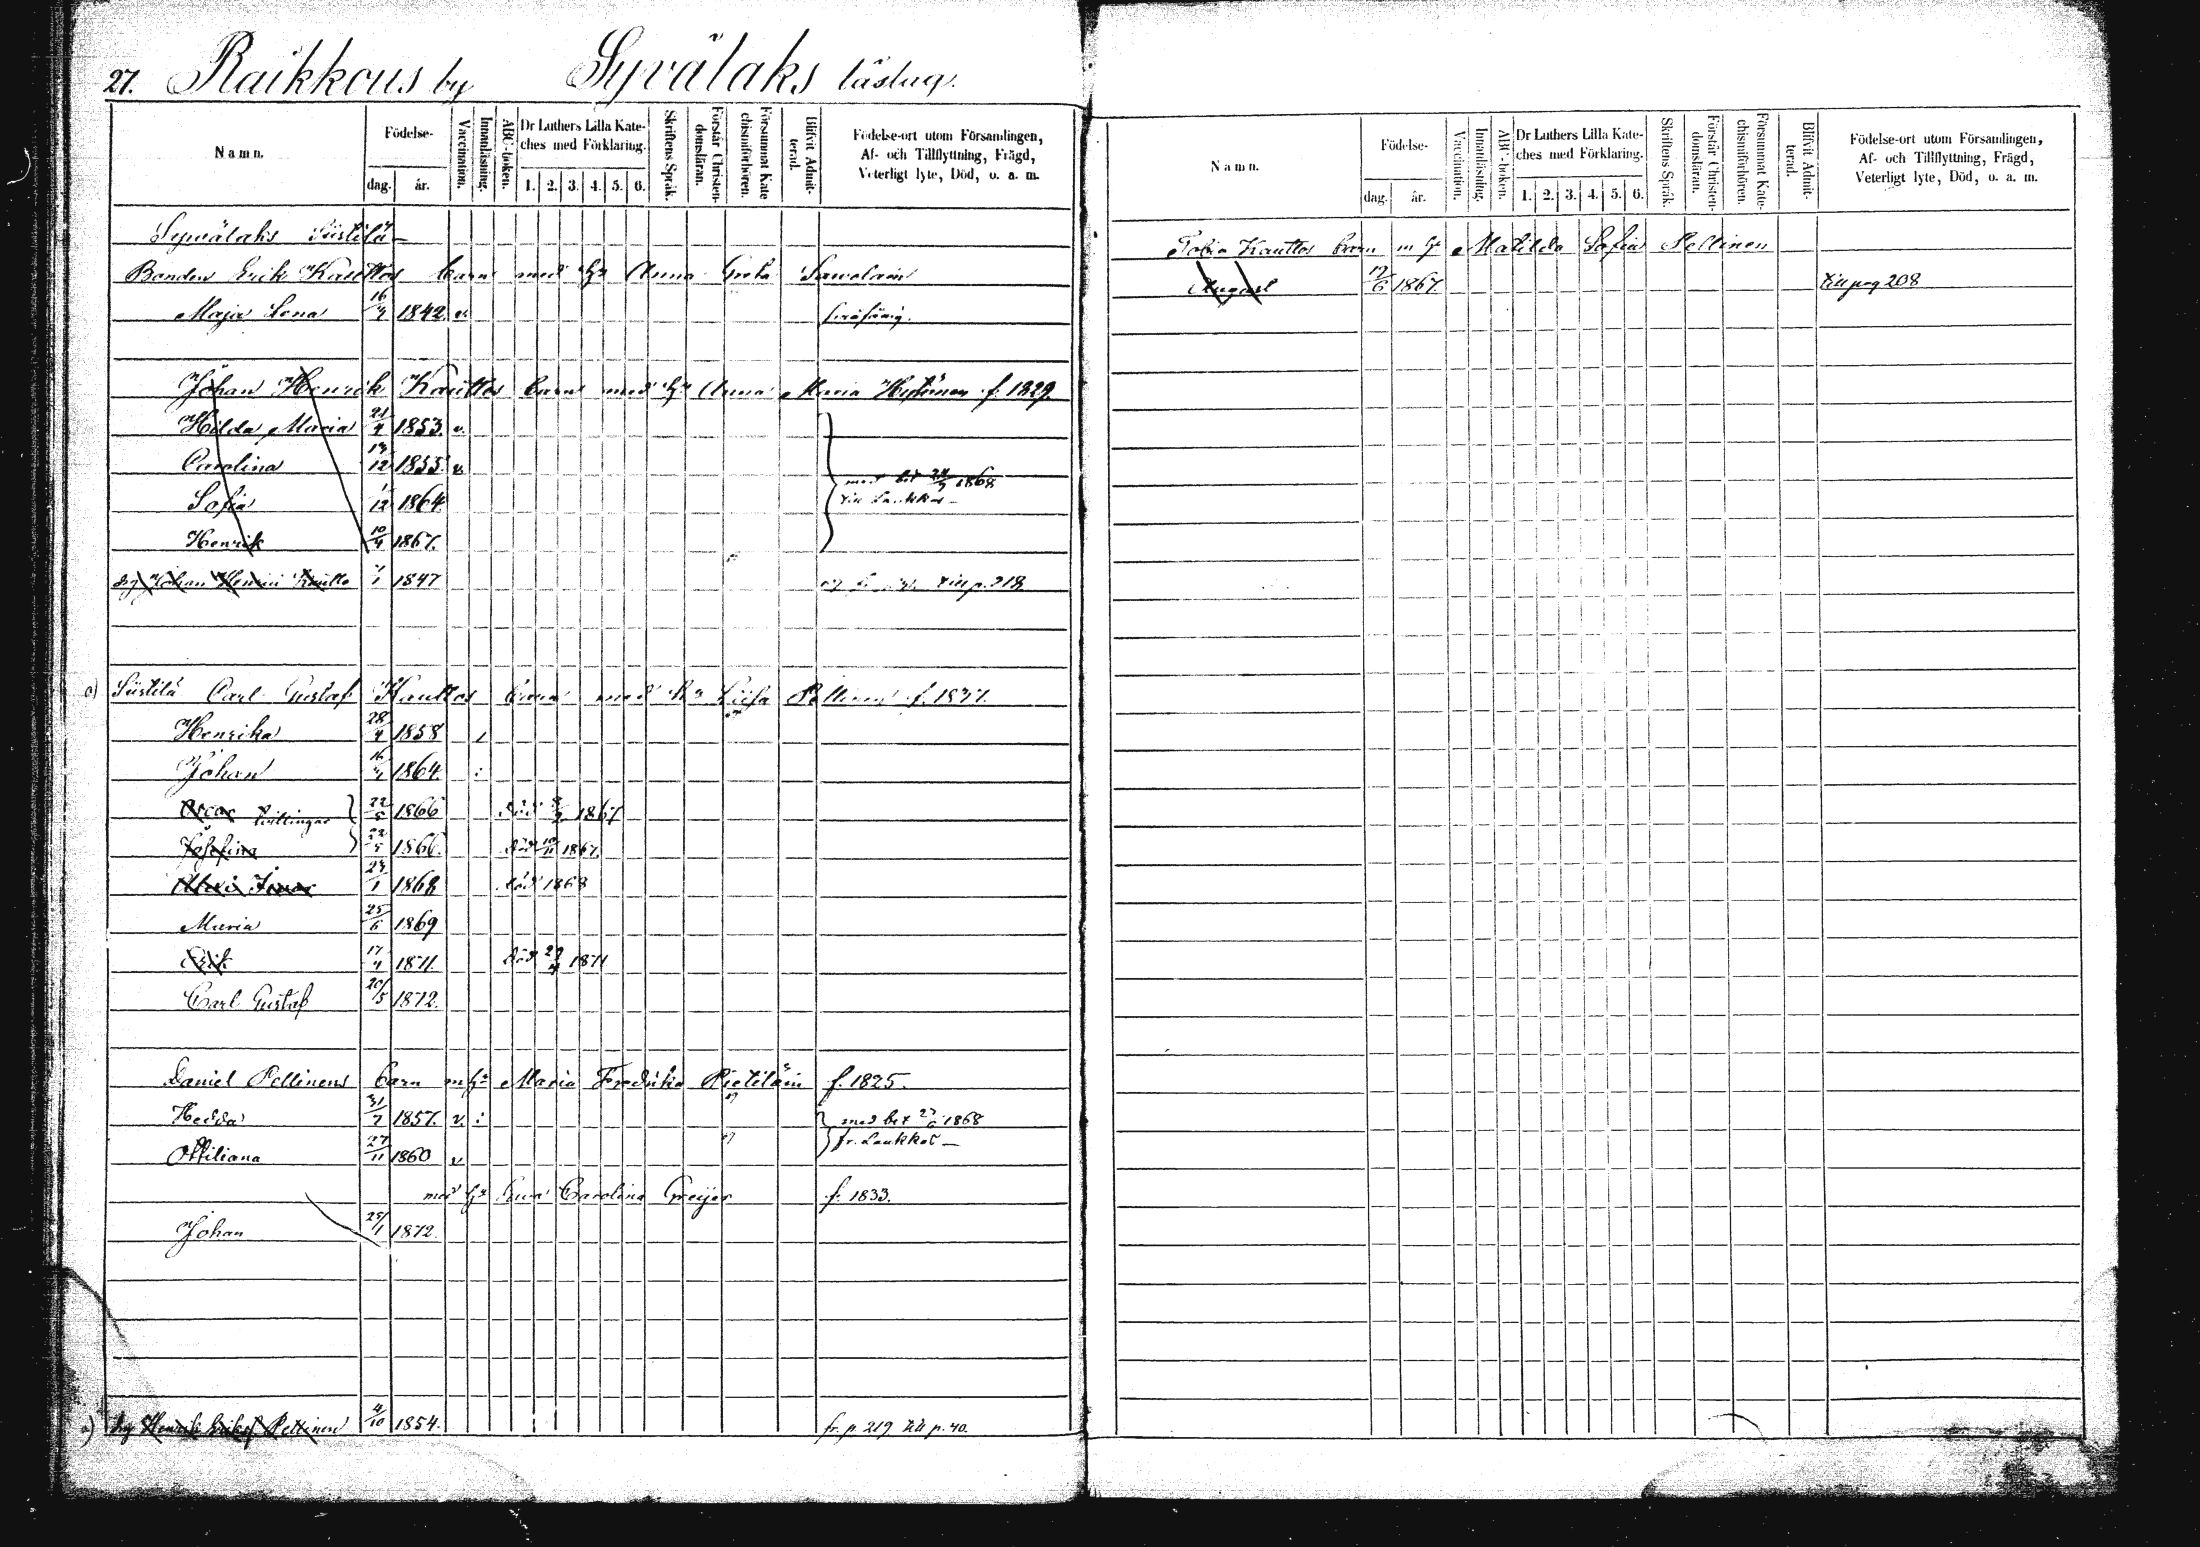 27. Raikkous by Syvälaks lästag.
Namn.
Födelse-
dag. år.
Vaccination.
Innanläsning.
ABC-boken.
Dr Luthers Lilla Kate-
ches med Förklaring.
1. 2. 3. 4. 5. 6.
Skriftens Språk.
Förstår Christen-
domsläran.
Försummat Kate
chismiförhören.
Blifvit Admit-
terad.
Födelse-ort utom Församlingen,
Af- och Tillflyttning, Frägd,
Veterligt lyte, Död, o. a. m.
Syvälaks Siistilä
Bonden Erik Kauttos barn med h:u Anna Greta
Maja Lena 1842. v.
Johan Henrik Kauttos barn med h:u Anna Maria f. 1829.
Hilda Maria 21/4 1853. v.
Carolina 13/12 1855 v.
med bet 1868
Sofia 1/12 1864
till Laukkas
Henrik 10/4 1867.
Johan Henric Kautto 1847 till p. 218
a) Siistilä Carl Gustaf Kauttos barn med h:u Liisa f. 1837.
Henrika 28/4 1858
Johan 1864.
Oscar tvillingar 22/5 1866 död 1867
Josefina 22/5 1866. död 1867.
23/1 1868 död 1868
Maria 25/6 1869
Erik 17/4 1871. död 29/4 1871
Carl Gustaf 20/5 1872.
Daniel Pellinens barn m h:u Maria Fredrika Pietiläin f. 1825.
Hedda 31/7 1857. v. med bet 1868
Ottiliana 27/11 1860 v fr. Laukkas
med h:u Carolina Greijer f. 1833.
Johan 25/1 1872.
a) Henrik Eriksf Pellinen 4/10 1854. fr. p. 219 till p. 40.
Namn.
Födelse-
dag. år.
Vaccination.
Innanläsning.
ABC-boken.
Dr Luthers Lilla Kate-
ches med Förklaring.
1. 2. 3. 4. 5. 6.
Skriftens Språk.
Förstår Christen-
domsläran.
Försummat Kate-
chismiförhören.
Blifvit Admit-
terad.
Födelse-ort utom Församlingen,
Af- och Tillflyttning, Frägd,
Veterligt lyte, Död, o. a. m.
Tobia Kauttos barn m h:u Matilda Sofia Pellinen
August 17/6 1867. till pag 208